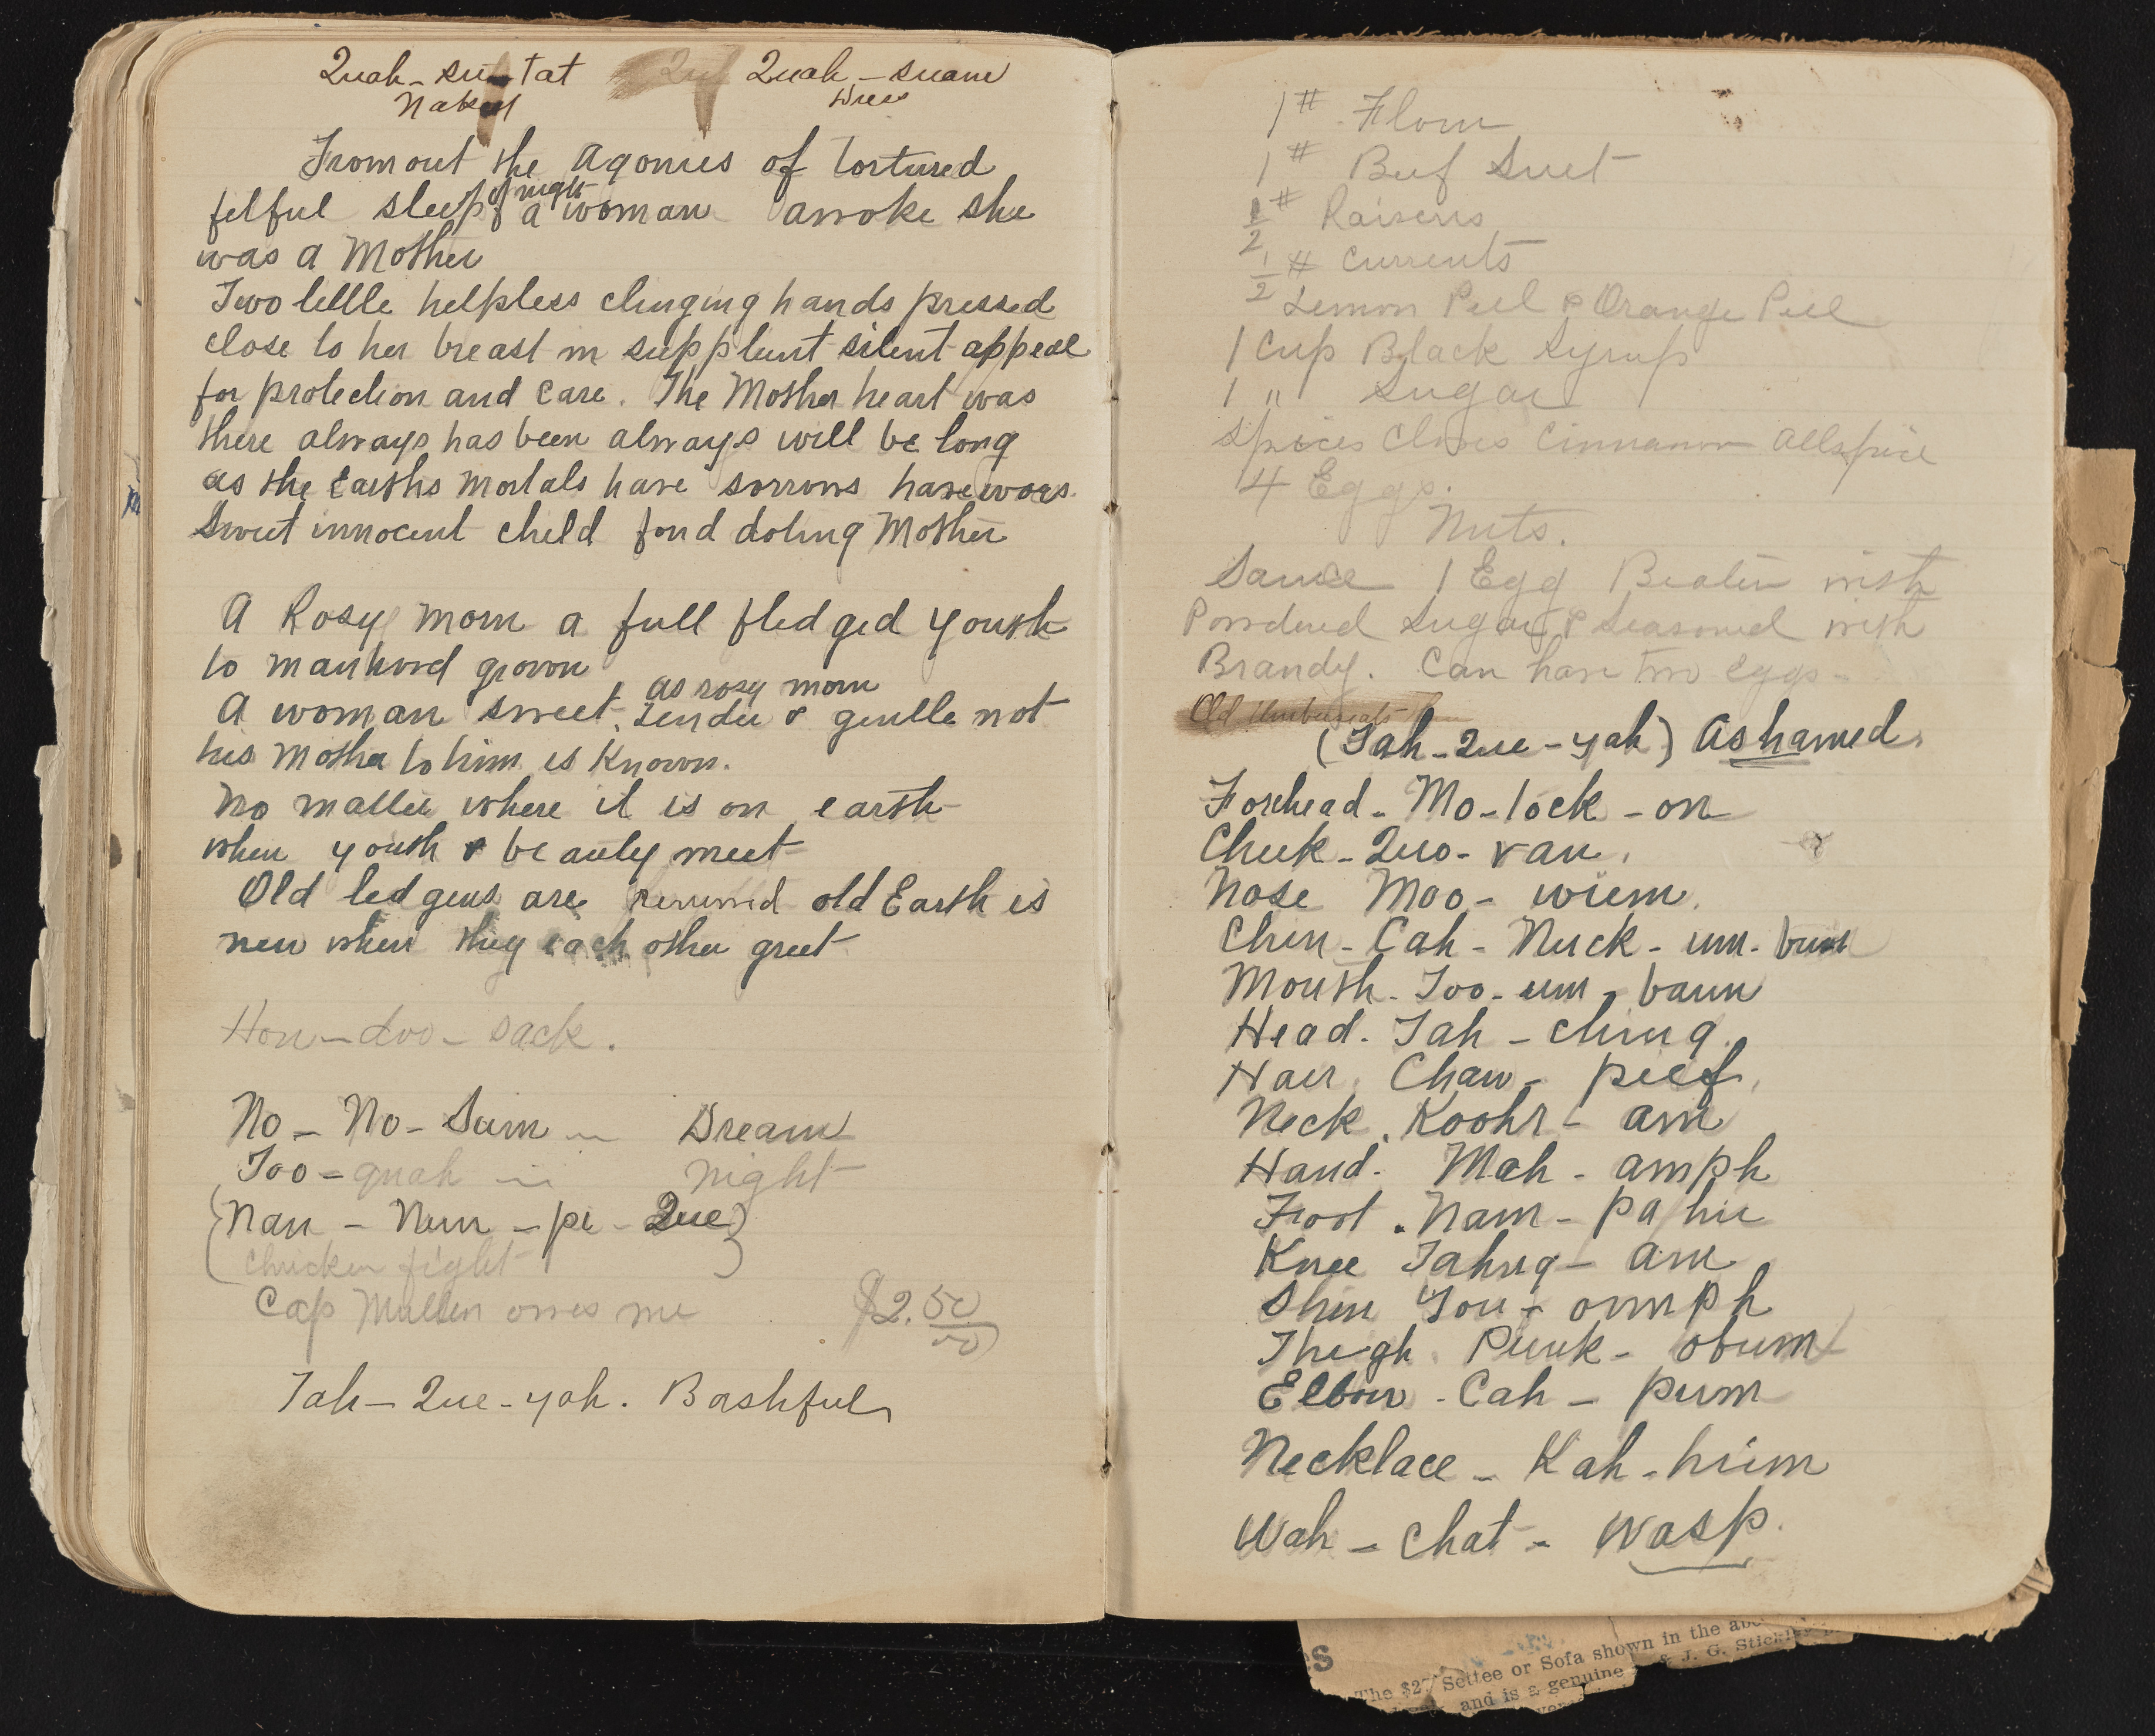 Quah-su-tat Quah-suam
Naked Dress
From out the Agonies of tortured
fitful sleep of night a woman awoke she
was a Mother
Two little helpless clinging hands pressed
close to her breast in supplient silent appeal
for protection and care. The Mother heart was
there always has been always will be long
as the Earths mortals have sorrows have woes
Sweet innocent child fond doting Mother
A Rosy morn a full fledged youth
to manhood grown
as rosy morn
A woman sweet, tender & gentle not
his Mother to him is known.
No matter where it is on earth
when youth & beauty meet
Old ledgens are renewed old Earth is
new when they each other greet
Hon-doo-sack.
No-No-Sum Dream
Too-quah night
(Nan-Num-pi-Que)
Chicken fight
Cap Mullen owes me $2.50
Tah-Que-yah. Bashful
1# Flour
1# Beef Suet
1/2# Raisens
1/2# Currents
Lemon Peel & Orange Peel
1 Cup Black Syrup
1 " Sugar
Spices Cloves Cinnamon Allspice
4 Eggs.
Nuts.
Sauce 1 Egg Beaten with
Powdered Sugar & Seasoned with
Brandy. Can have two eggs-
Old
(Tah-Que-yah) Ashamed.
Forehead-Mo-tock-on
Cheek-Quo-van.
Nose Moo-wiem.
Chin-Cah-Nuck-um-
Mouth-Too-um-baum
Head. Tah-ching.
Hair. Chaw-peef.
Neck. Koohr-am
Hand. Mah-amph
Foot. Nam-pahu
Knee Tahng-am
Shin You-oomph
Thigh Punk-obum
Elbow-Cah-pum
Necklace-Kah-him
Wah-chat-Wasp.
s
The $27 Settee or Sofa shown in the abo
and is a genuine & J. G. Stickley